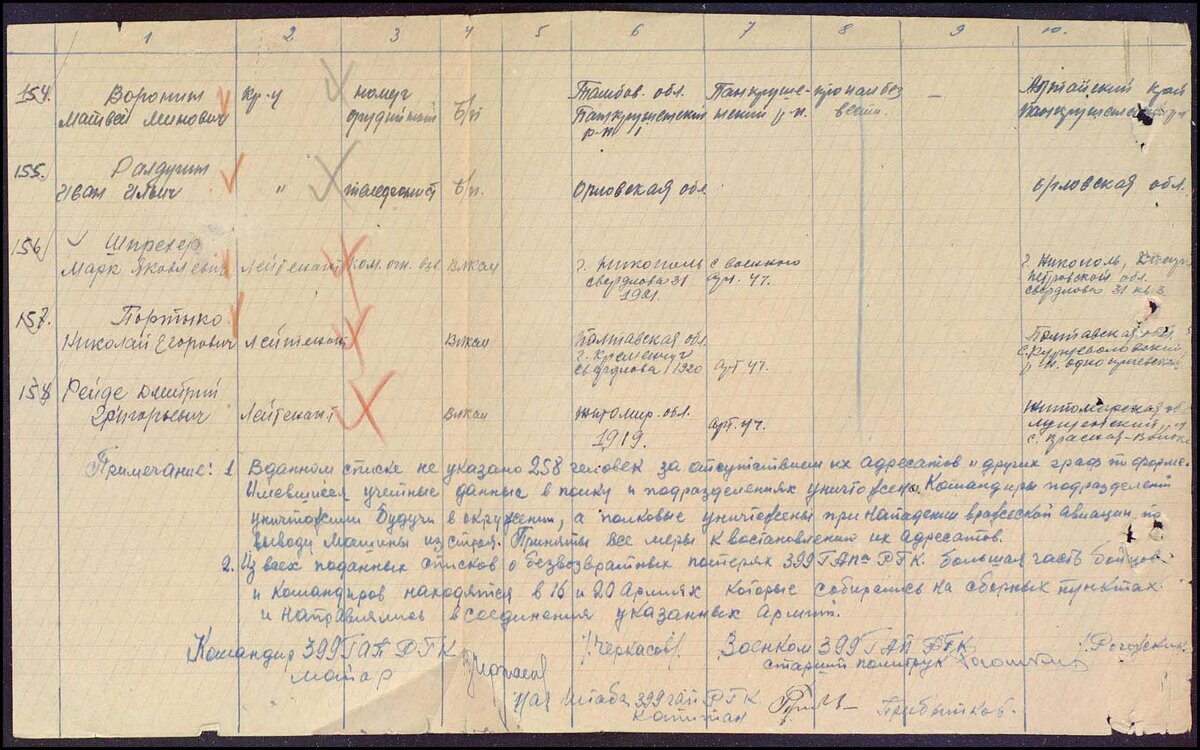 1 2 3 4 5 6 7 8 9 10.
154. Воронин Кр-ц номер б/п Тамбов. обл. Панкруше- призван без — Алтайский край
Матвей Минович орудийный Панкрушенский р-н
155. Ралдугин
Иван Ильич " телефонист б/п. Орловская обл. Орловская обл.
156 Шпрехер
Марк Яковлевич Лейтенант Ком. огн. взв. ВЛКСМ г. Никополь с военного г. Никополь,
Свердлова 31 Арт. уч. Петровской обл.
1921. Свердлова 31 кв 3
157. Портыко
Николай Егорович Лейтенант ВЛКСМ Полтавская обл. Полтавская обл.
г. Кременчуг
1920 Арт уч.
158 Рейде Дмитрий
Григорьевич Лейтенант ВЛКСМ Житомир. обл. Арт. уч. Житомирская
1919. с. Красная-Волока
Примечание: 1 В данном списке не указано 258 человек за отсутствием их адресатов и других граф по форме.
Имевшиеся учетные данные в полку и подразделениях уничтожены. Командиры подразделений
уничтожили будучи в окружении, а полковые уничтожены при нападении вражеской авиации по
выводу машины из строя. Приняты все меры к востановлению их адресатов.
2. Из всех поданных списков о безвозвратных потерях 399 ГАПа РГК. Большая часть бойцов
и командиров находятся в 16 и 20 Армиях которые собирались на сборных пунктах
и направлялись в соединения указанных Армий.
Командир 399 ГАП РГК /Черкасов/. Военком 399 ГАП РГК /Рогожкин.
майор старший политрук
Нач Штаба 399 ГАП РГК
Капитан Прибытков.